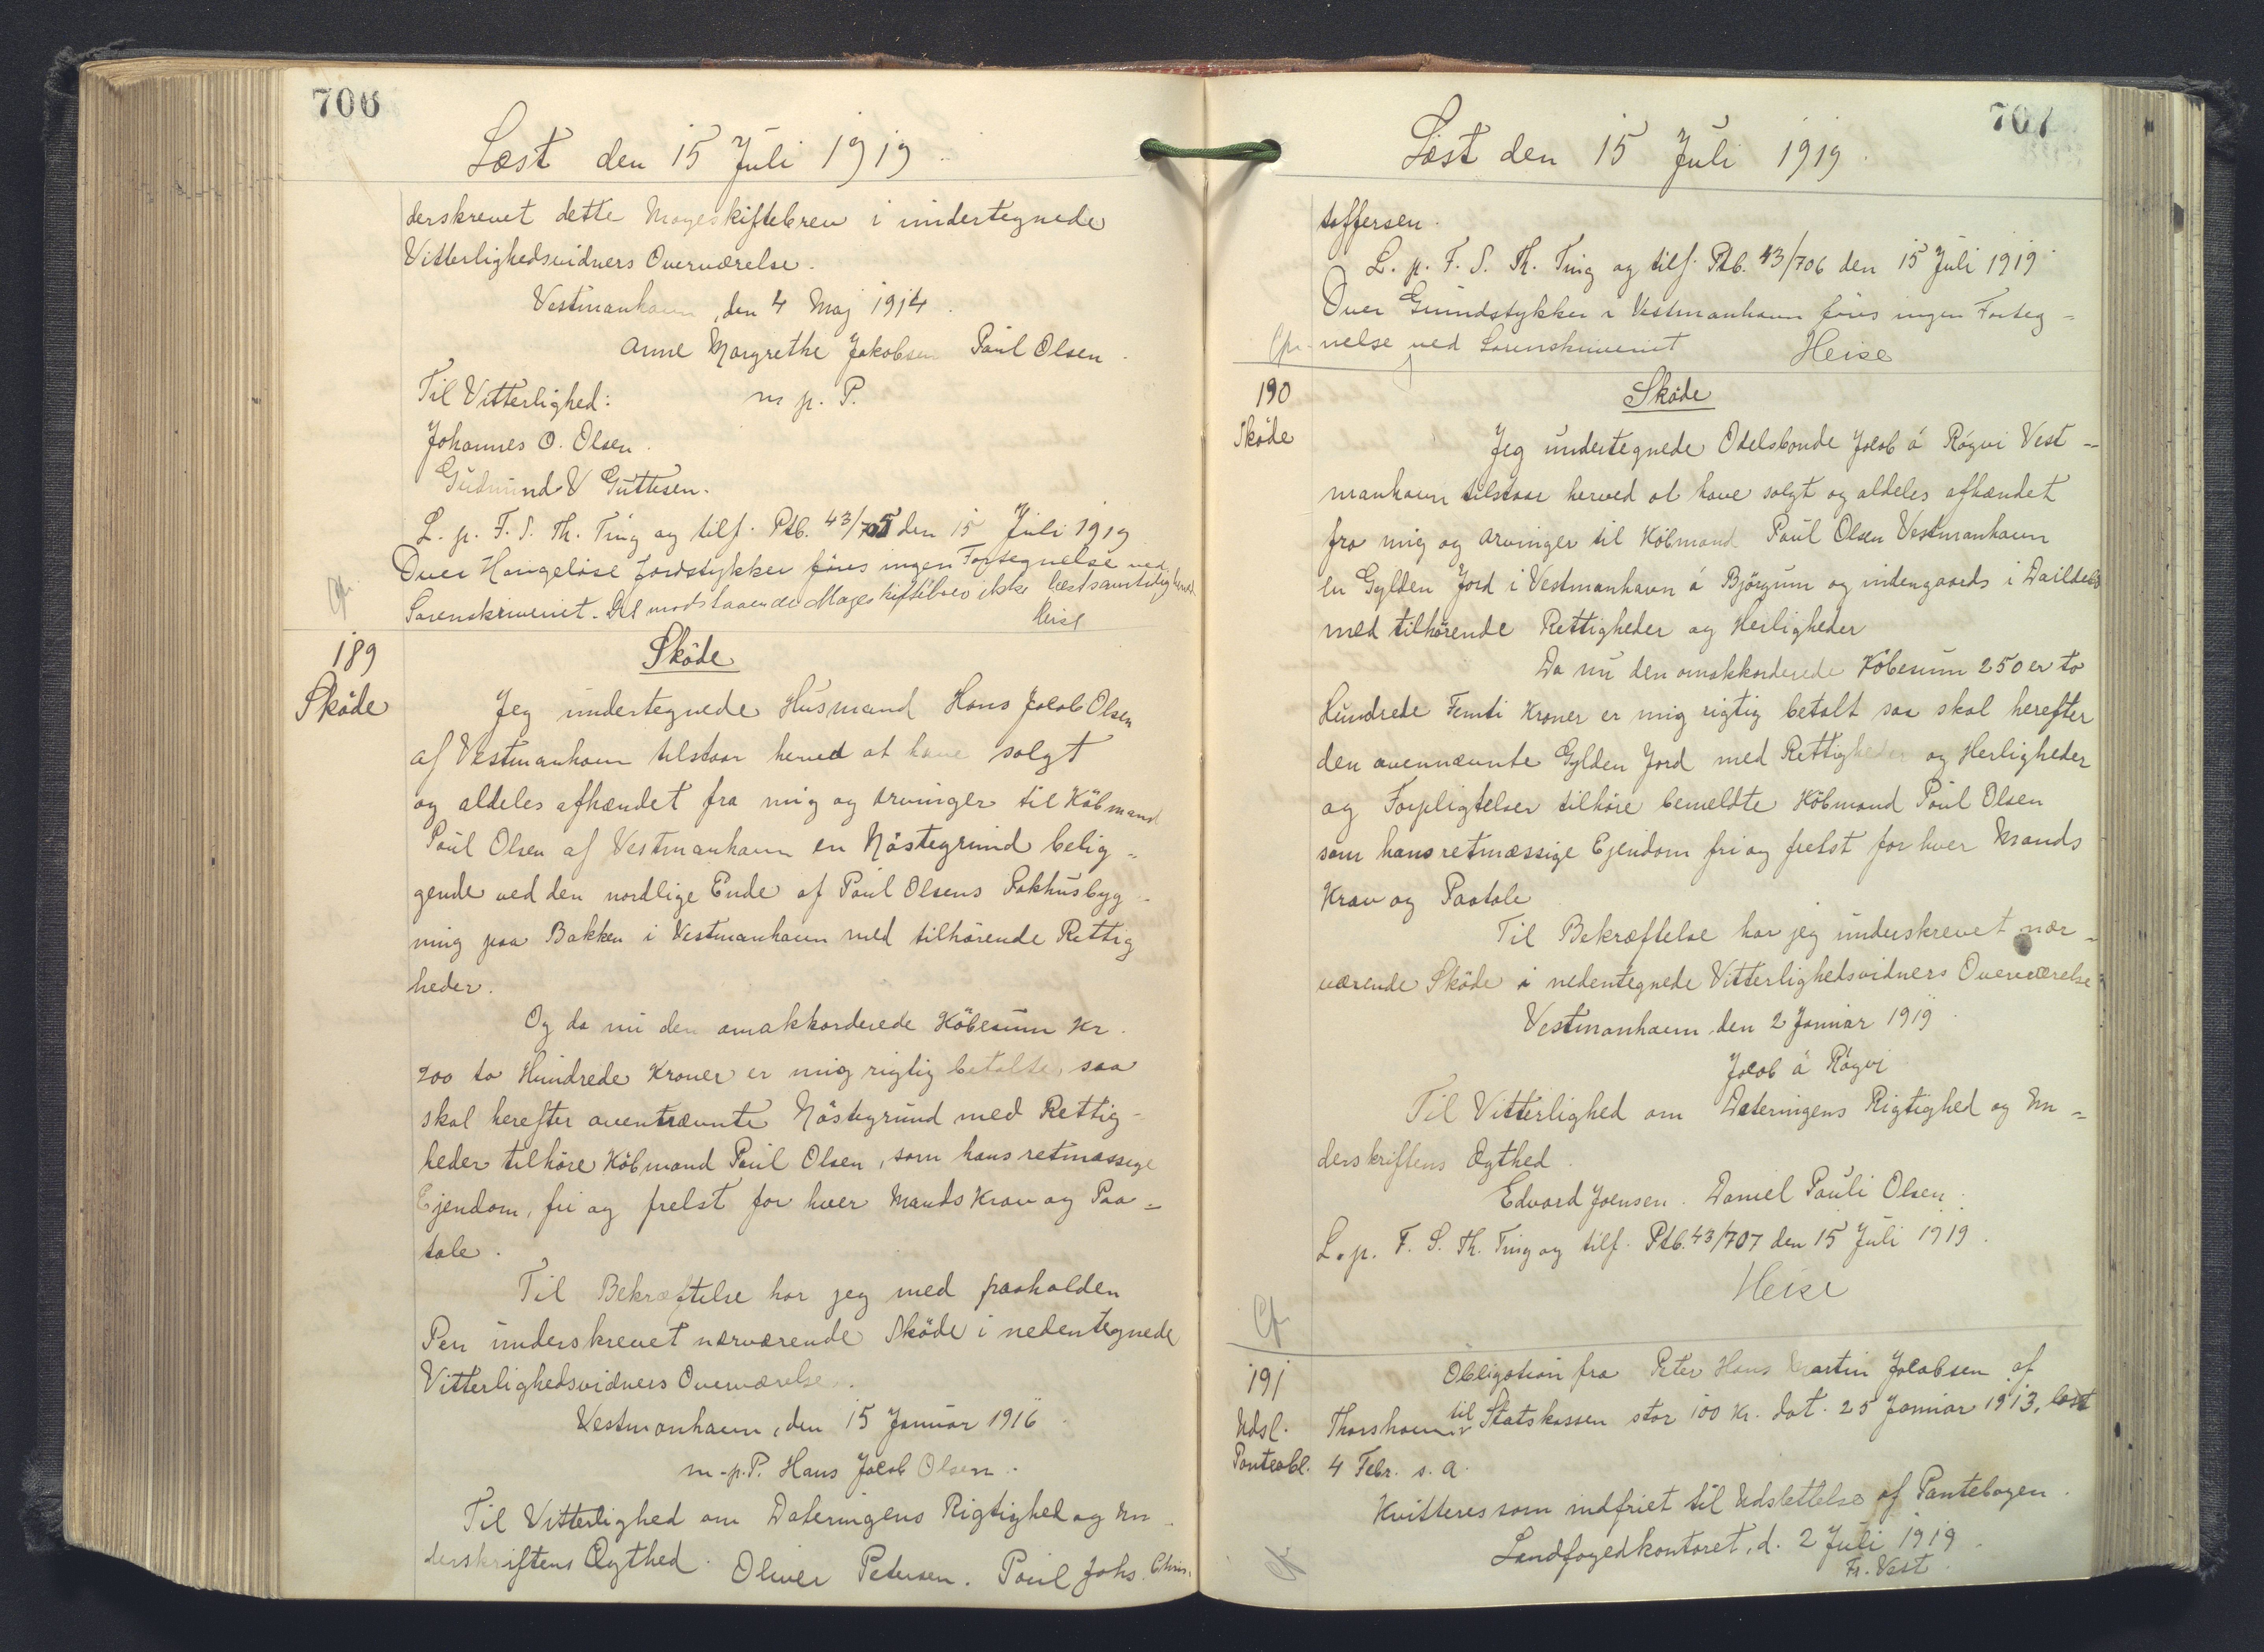 706
Læst den 15 Juli 1919.
derskrevet dette Mageskiftebrev i undertegnede
Vitterlighedsvidners Overværelse.
Vestmanhavn, den 4 Maj 1914.
Anne Margrethe Jakobsen Poul Olsen.
Til Vitterlighed: m p. P.
Johannes O. Olsen.
Gudmund V Guttesen.
L. p. F. S. Th. Ting og tilf. Ptb. 43/705 den 15 Juli 1919
Over Haugeløse Jordstykker føres ingen Fortegnelse ved
Sorenskriveriet. Det modstaaende Mageskiftebrev ikke læst samtidig hermed.
Heise
Cfr.
189
Sköde
Sköde
Jeg undertegnede Husmand Hans Jacob Olsen
af Vestmanhavn tilstaar herved at have solgt
og aldeles afhændet fra mig og Arvinger til Köbmand
Poul Olsen af Vestmanhavn en Nöstegrund belig=
gende ved den nordlige Ende af Poul Olsens Pakhusbyg-
ning paa Bakken i Vestmanhavn med tilhørende Rettig
heder.
Og da nu den omakkorderede Köbesum Kr.
200 to Hundrede Kroner er mig rigtig betalte, saa
skal herefter ovennævnte Nöstegrund med Rettig-
heder tilhöre Köbmand Poul Olsen, som hans retmæssige
Ejendom, fri og frelst for hver Mands Krav og Paa=
tale.
Til Bekræftelse har jeg med paaholden
Pen underskrevet nærværende Sköde i nedentegnede
Vitterlighedsvidners Overværelse.
Vestmanhavn, den 15 Januar 1916.
m.p.P. Hans Jacob Olsen.
Til Vitterlighed om Dateringens Rigtighed og Un-
derskriftens Ægthed. Oliver Petersen. Poul Johs. Chris.
707
Læst den 15 Juli 1919.
toffersen.
L. p. F. S. Th. Ting og tilf. Ptb. 43/706 den 15 Juli 1919
Over Grundstykker i Vestmanhavn føres ingen Forteg=
Cfr. nelse ved Sorenskriveriet Heise
190
Sköde
Sköde
Jeg undertegnede Odelsbonde Jacob á Rógvi Vest=
manhavn tilstaar herved at have solgt og aldeles afhændet
fra mig og Arvinger til Köbmand Poul Olsen Vestmanhavn
en Gylden Jord i Vestmanhavn á Björgum og indengaards i
med tilhörende Rettigheder og Herligheder
Da nu den omakkorderede Köbesum 250 er to
Hundrede Femti Kroner er mig rigtig betalt saa skal herefter
den ovennævnte Gylden Jord med Rettigheder og Herligheder
og Forpligtelser tilhöre bemeldte Köbmand Poul Olsen
som hans retmæssige Ejendom fri og frelst for hver Mands
Krav og Paatale
Til Bekræftelse har jeg underskrevet nær-
værende Sköde i nedentegnede Vitterlighedsvidners Overværelse
Vestmanhavn den 2 Januar 1919.
Jacob á Rógvi
Til Vitterlighed om Dateringens Rigtighed og Un=
derskriftens Ægthed.
Edvard Joensen. Daniel Pauli Olsen.
L. p. F. S. Th. Ting og tilf. Ptb. 43/707 den 15 Juli 1919.
Heise
Cfr
191
Udsl.
Panteobl.
Obligation fra Peter Hans Martin Jacobsen af
Thorshavn til Statskassen stor 100 Kr. dat. 25 Januar 1913, læst
4 Febr. s. a.
Kvitteres som indfriet til Udslettelse af Pantebogen.
Landfogedkontoret, d. 2 Juli 1919.
Fr. Vest.
Cfr